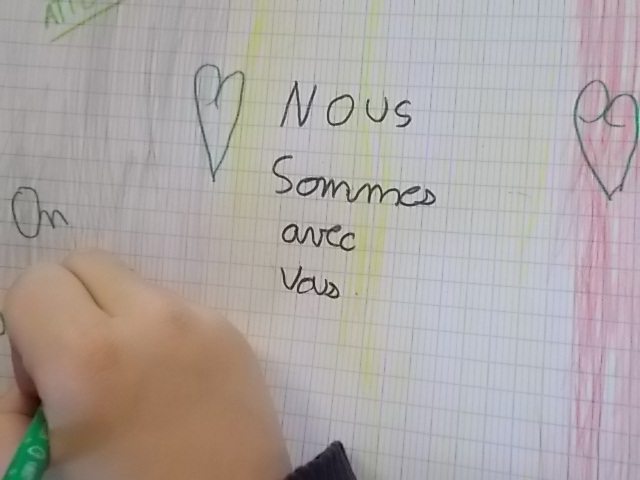 NOUS
Sommes
avec
Vous
On